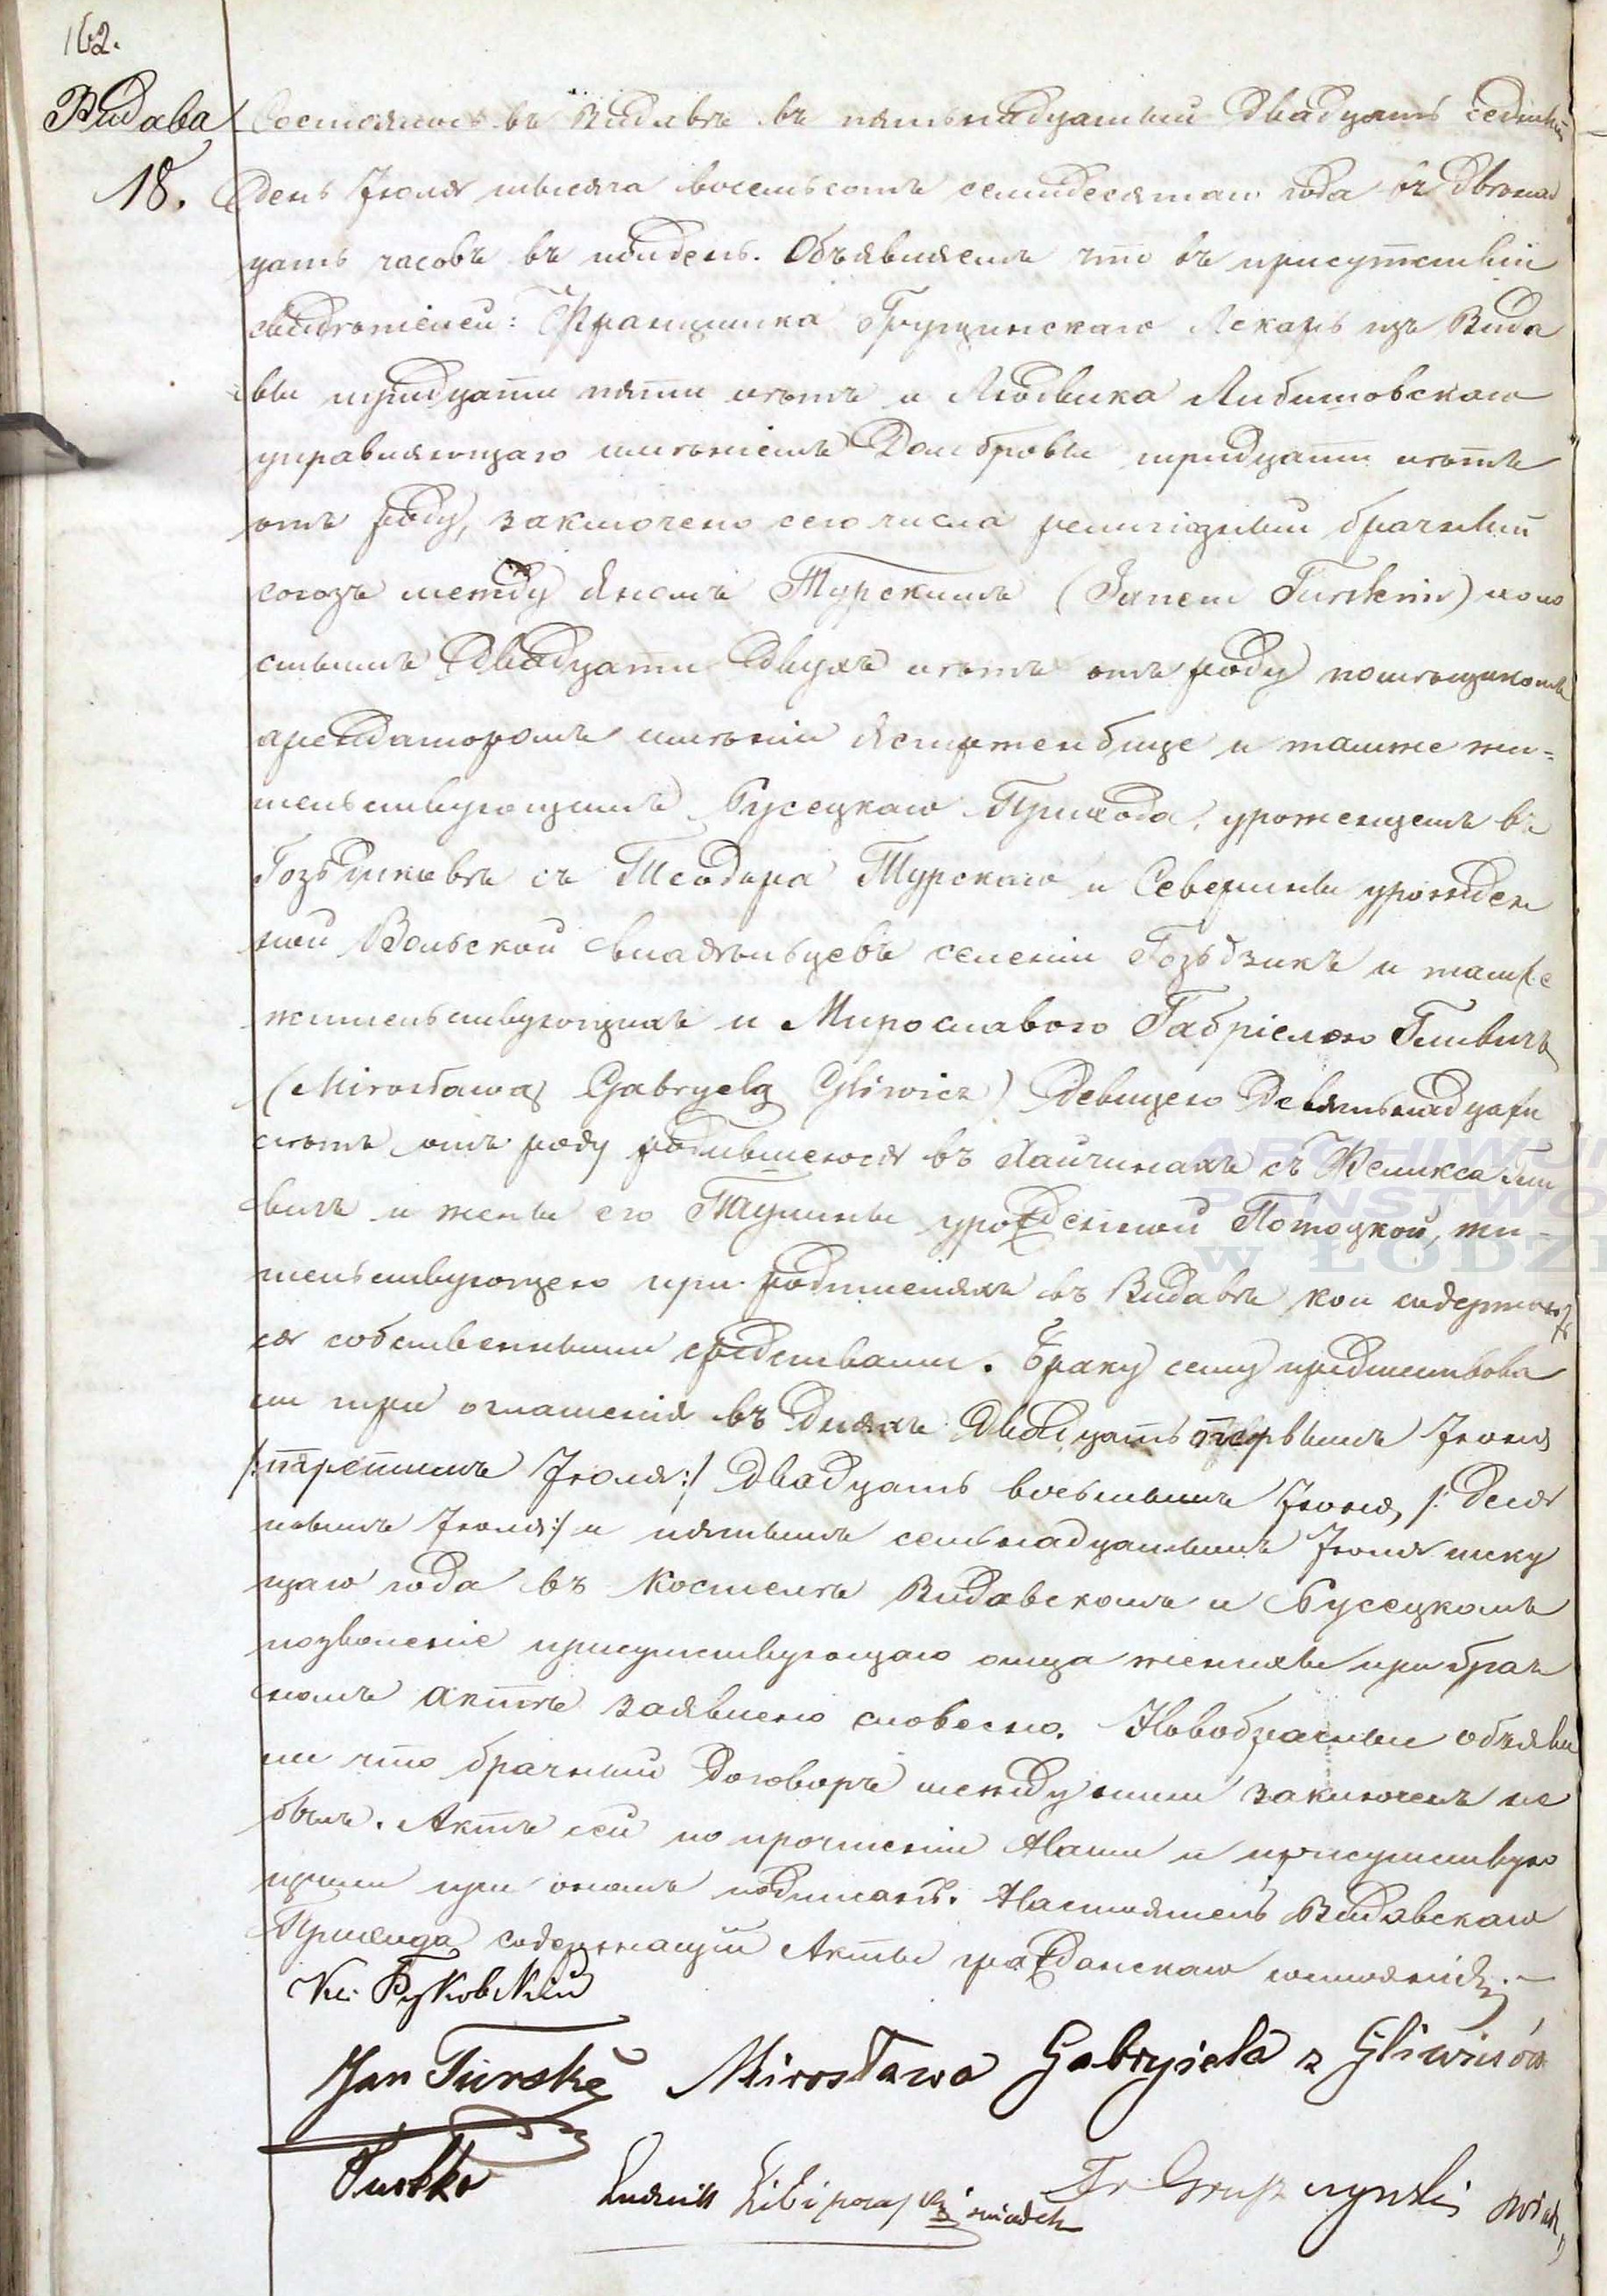 162.
Видава
18.
Состоялось въ Видавѣ въ пятьнадцатый двадцать седмый
день Іюля тысяча восемьсотъ семидесятаго года въ двѣнад
цать часовъ въ полдень. Объявляемъ что въ присутствіи
свидѣтелей: Францишка Грущинскаго Лекарь изъ Вида
вы тридцати пяти лѣтъ и Людвика Либишовскаго
управляющаго имѣніемъ Домбровы тридцати лѣтъ
отъ роду, заключено сего числа религіозный брачный
союзъ между Яномъ Турскимъ (Janem Turskim) холо
стымъ двадцати двухъ лѣтъ отъ роду помѣщикомъ
арендаторомъ имѣнія Ястржембице и тамже жи-
тельствующимъ Бусецкаго Прихода, уроженцемъ въ
съ Теодора Турскаго и Северины урожден
ной Вольской владѣльцевъ селенія Гозьдзикъ и тамже
жительствующихъ и Мирославою Габріелею Гливичъ
(Mirosławą Gabryelą Gliwicz) девицею девятьнадцати
лѣтъ отъ роду родившеюся въ съ Феликса Гли
вичъ и жены его урожденной Потоцкой, жи-
тельствующею при родителяхъ въ Видавѣ кои содержают
ся собственными средствами. Браку сему предшествова
ли три оглашенія въ дняхъ двадцать первымъ Іюня
/:третимъ Іюля:/ двадцать восьмымъ Іюня, /: деся
тымъ Іюля:/ и пятымъ семьнадцатымъ Іюля теку
щаго года въ Костелѣ Видавскомъ и Бусецкомъ
позволеніе присутствующаго отца женихы при брач
номъ актѣ заявлено словесно. Новобрачные объяви
ли что брачный договоръ между ними заключенъ не
былъ. Актъ сей по прочтеніи Нами и присутствую
щими при ономъ подписанъ. Настоятель Видавскаго
Прихода содержащій Акты гражданскаго состоянія. —
Кс: Буковскій
Jan Turski Mirosława Gabryiela z Gliwiczów
Turska
Ludwik Libiszowski świadek Fr Gruszczyński świad
ARCHIWUM
PAŃSTWO
W ŁODZI